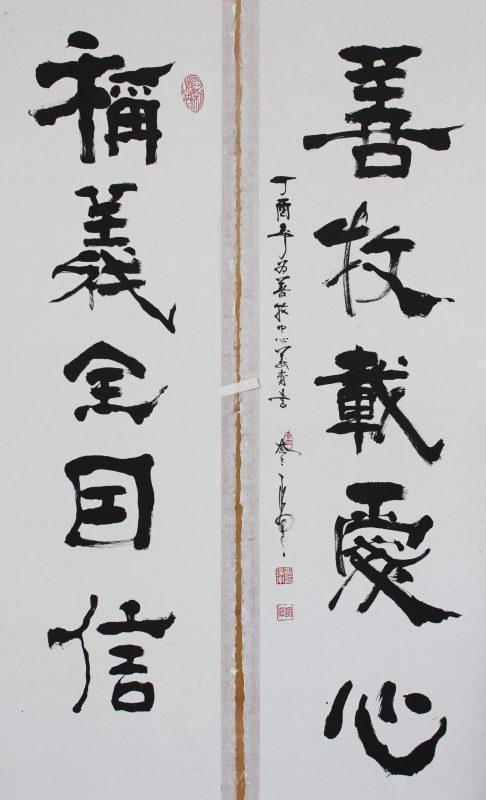 善牧載愛心
丁酉年为善牧中心義賣書
稱義全因信